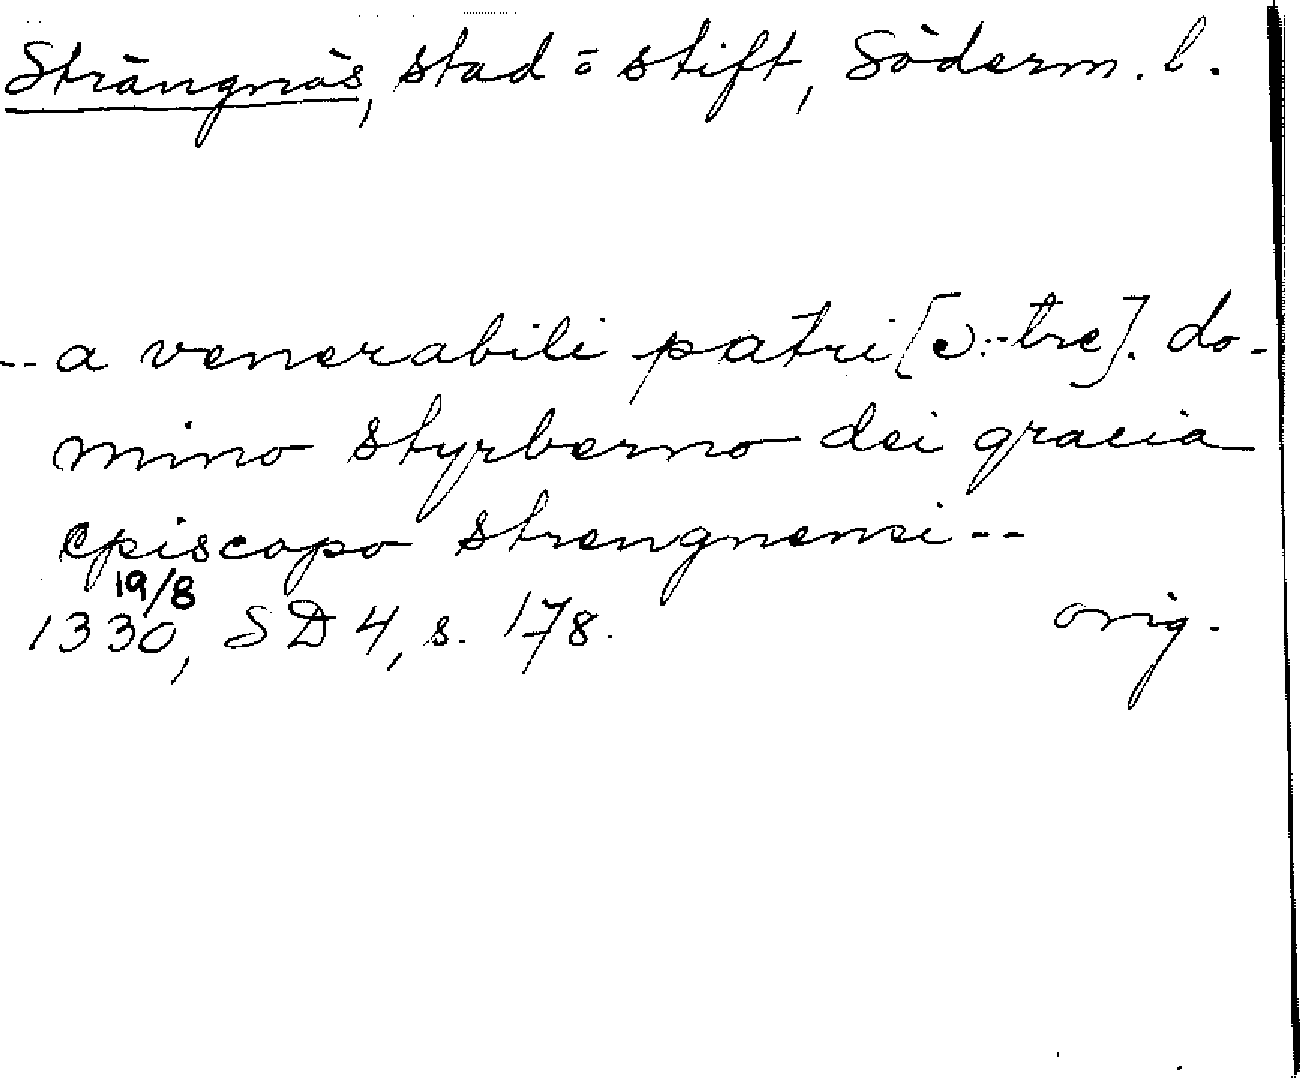 Strängnäs, stad o. stift, Söderm. l.
-- a venerabili patri [ɔ:-tre]. do-
mino styrberno dei gracia
episcopo strengnensi --
19/8
1330, SD 4, s. 178. orig.